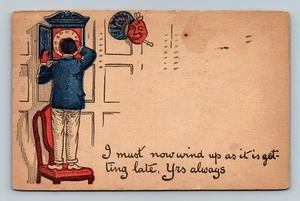 I must now wind up as it is get-
ting late. Yrs always